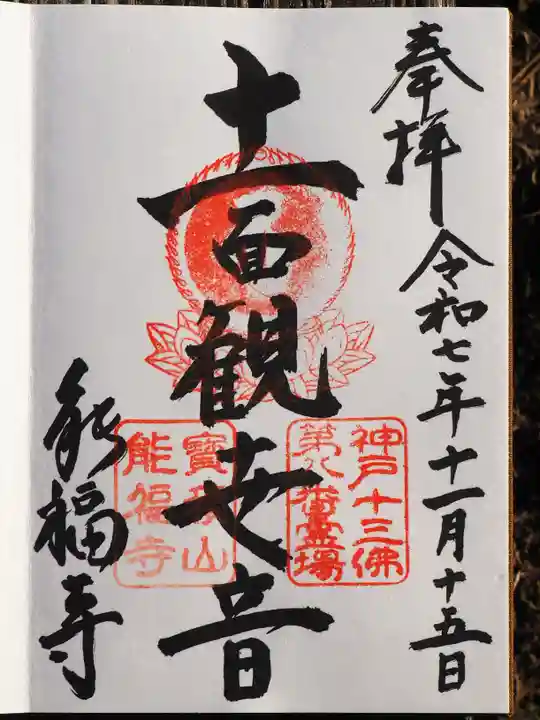 奉拝 令和七年十一月十五日
十一面観世音
神戸十三佛
第八番霊場
能福寺
能福寺